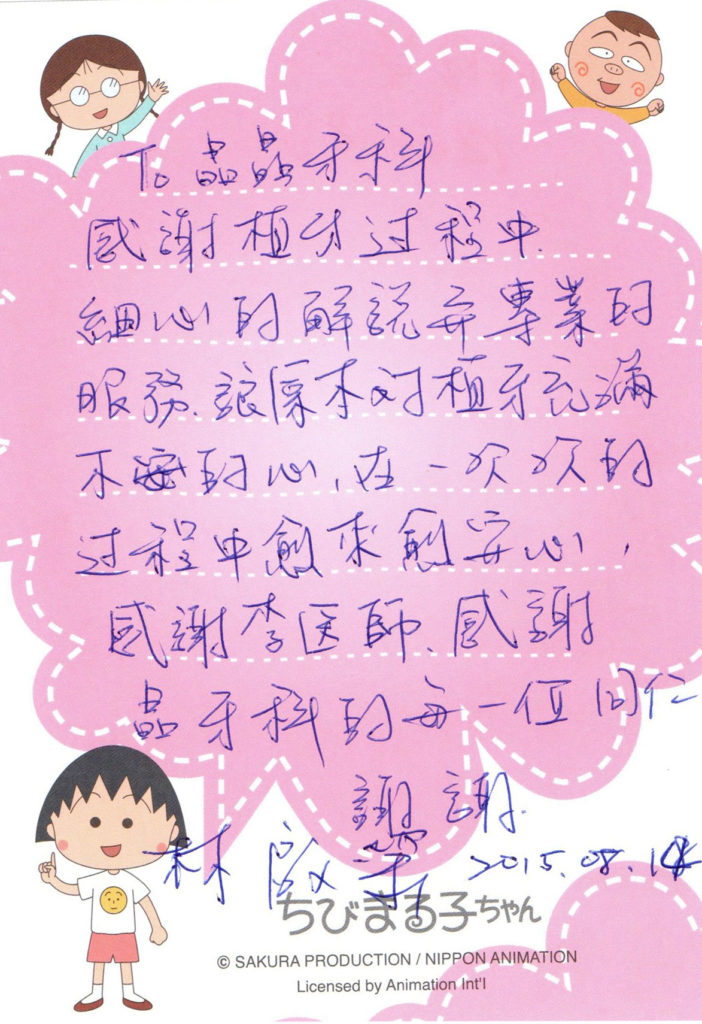 To 晶晶牙科
感謝植牙过程中.
細心的解說并專業的
服務、讓原本对植牙充滿
不安的心,在一次次的
过程中愈來愈安心,
感謝李医師、感謝
晶牙科的每一位同仁
謝謝.
林啟 2015.08.14
ちびまる子ちゃん
© SAKURA PRODUCTION / NIPPON ANIMATION
Licensed by Animation Int'l